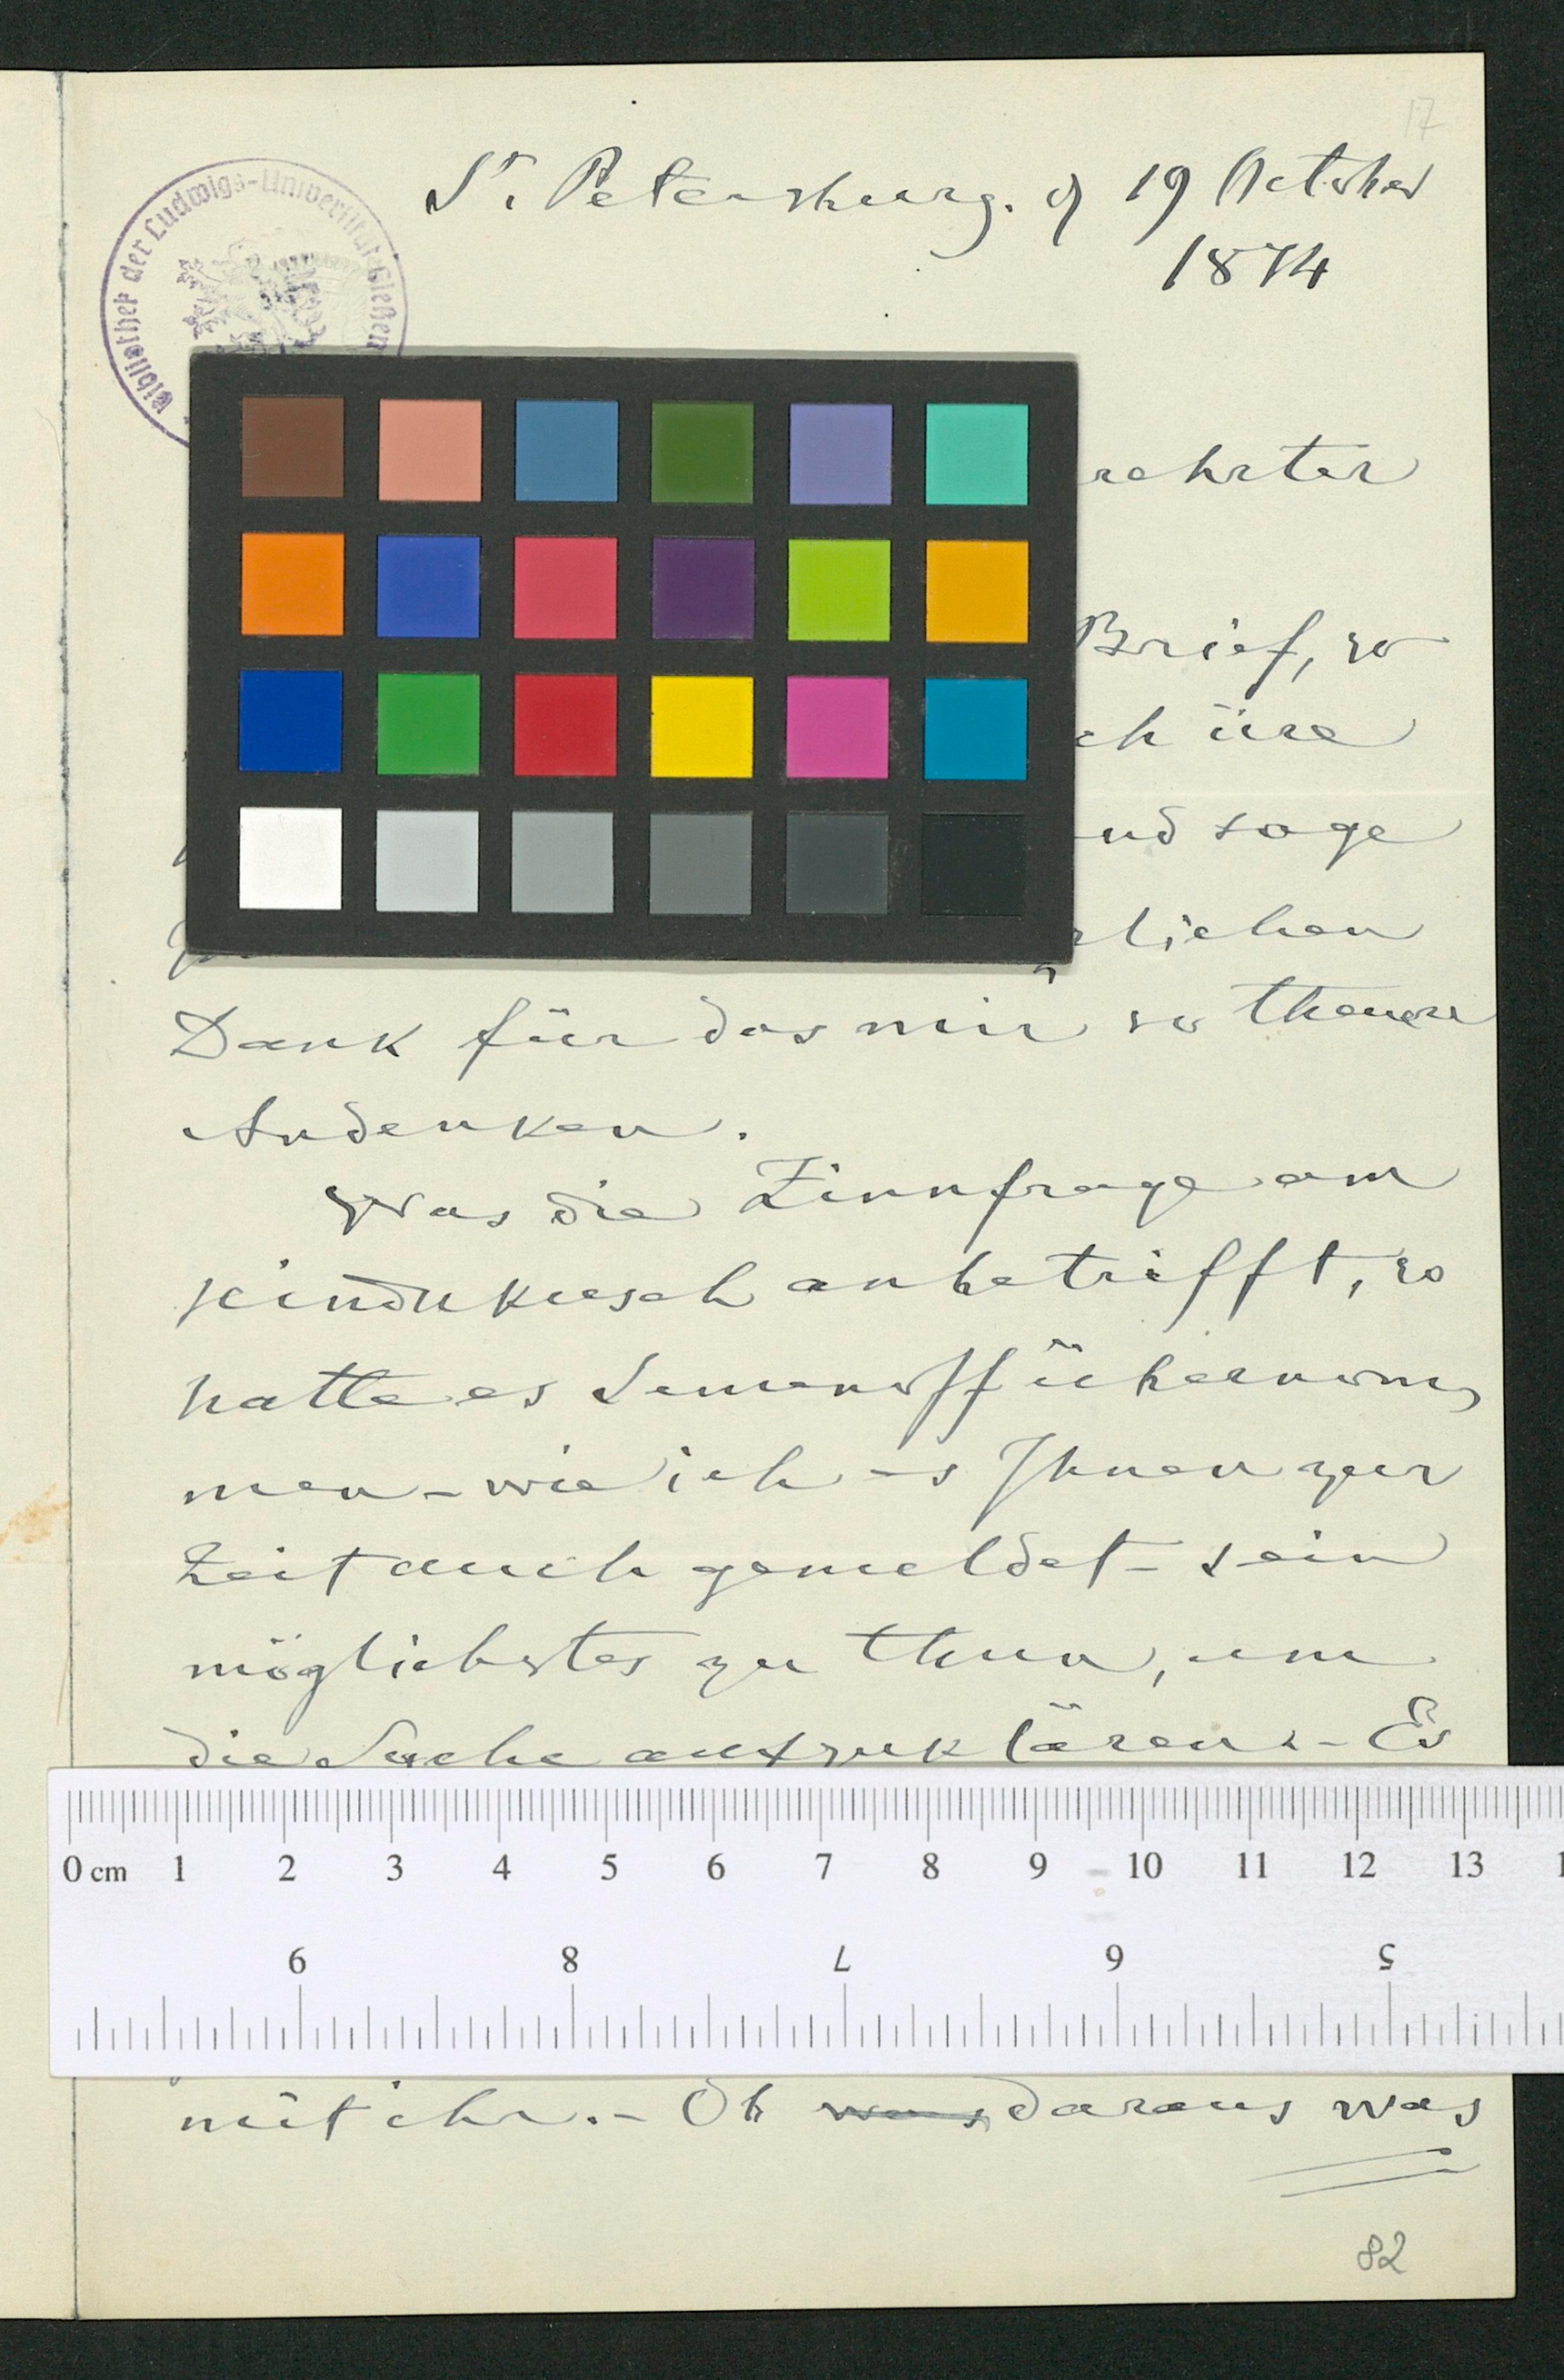 17
St. Petersburg. d 19 October
1874
Bibliothek der Ludwigs-Universität Gießen
rehrter
Brief, so
ch üre
und sage
rlichen
Dank für das mir so theuere
Andenken.
Was die Zinnfrage am
Hindukusch anbetrifft, so
hatte es Semenoff übernom
men - wie ich es Ihnen zur
Zeit auch gemeldet - sein
möglichstes zu thun, um
die Sache aufzuklären. - Es
0 cm 1 2 3 4 5 6 7 8 9 10 11 12 13 1
9 8 7 6 5
mit ihr. - Ob was daraus was
82